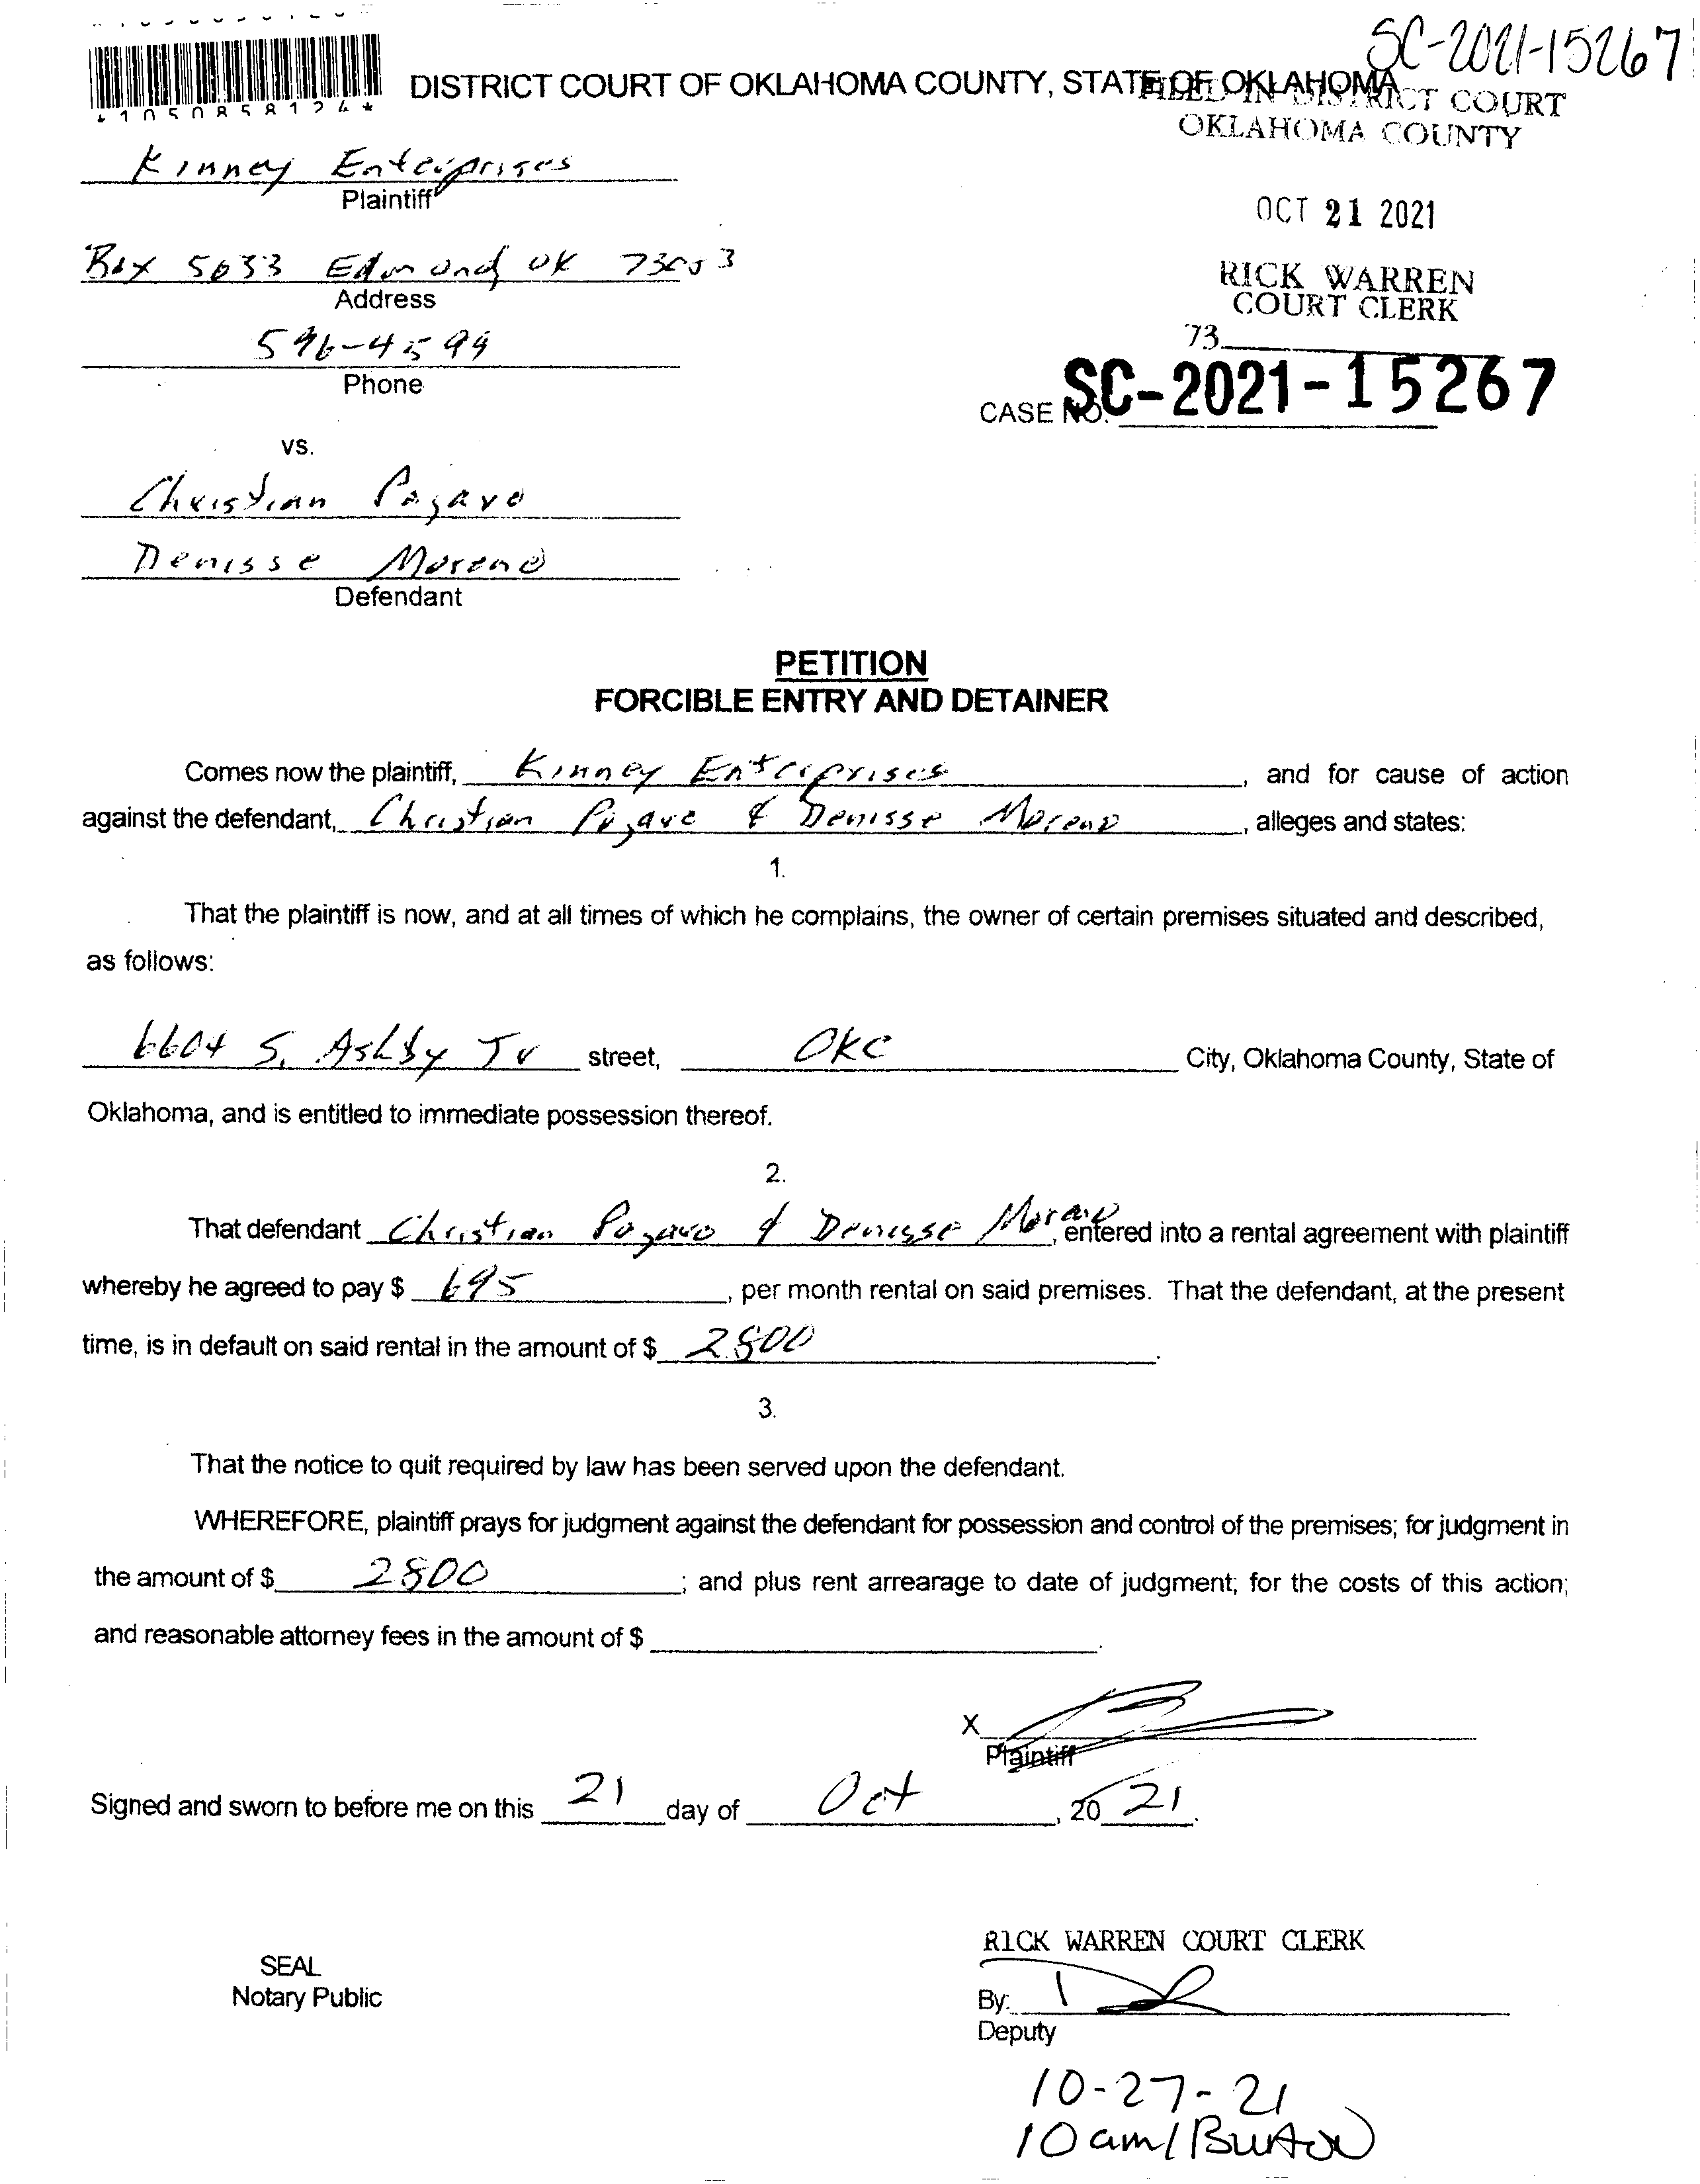 SC-2021-15267
*1050858124*
DISTRICT COURT OF OKLAHOMA COUNTY, STATE OF OKLAHOMA
FILED IN DISTRICT COURT
OKLAHOMA COUNTY
Kinney Enterprises
Plaintiff
OCT 21 2021
Box 5633 Edmond OK 73083
Address
RICK WARREN
COURT CLERK
596-4599
Phone
73
CASE NO. SC-2021-15267
vs.
Christian
Denisse Moreno
Defendant
PETITION
FORCIBLE ENTRY AND DETAINER
Comes now the plaintiff, Kinney Enterprises, and for cause of action
against the defendant, Christian & Denisse Moreno, alleges and states:
1.
That the plaintiff is now, and at all times of which he complains, the owner of certain premises situated and described,
as follows:
6604 S. Ashby Tr street, OKC City, Oklahoma County, State of
Oklahoma, and is entitled to immediate possession thereof.
2.
That defendant Christian & Denisse Moreno, entered into a rental agreement with plaintiff
whereby he agreed to pay $ 695, per month rental on said premises. That the defendant, at the present
time, is in default on said rental in the amount of $ 2800.
3.
That the notice to quit required by law has been served upon the defendant.
WHEREFORE, plaintiff prays for judgment against the defendant for possession and control of the premises; for judgment in
the amount of $ 2800; and plus rent arrearage to date of judgment; for the costs of this action;
and reasonable attorney fees in the amount of $.
X
Plaintiff
Signed and sworn to before me on this 21 day of Oct, 20 21.
RICK WARREN COURT CLERK
SEAL
Notary Public
By:
Deputy
10-27-21
10am/Burton